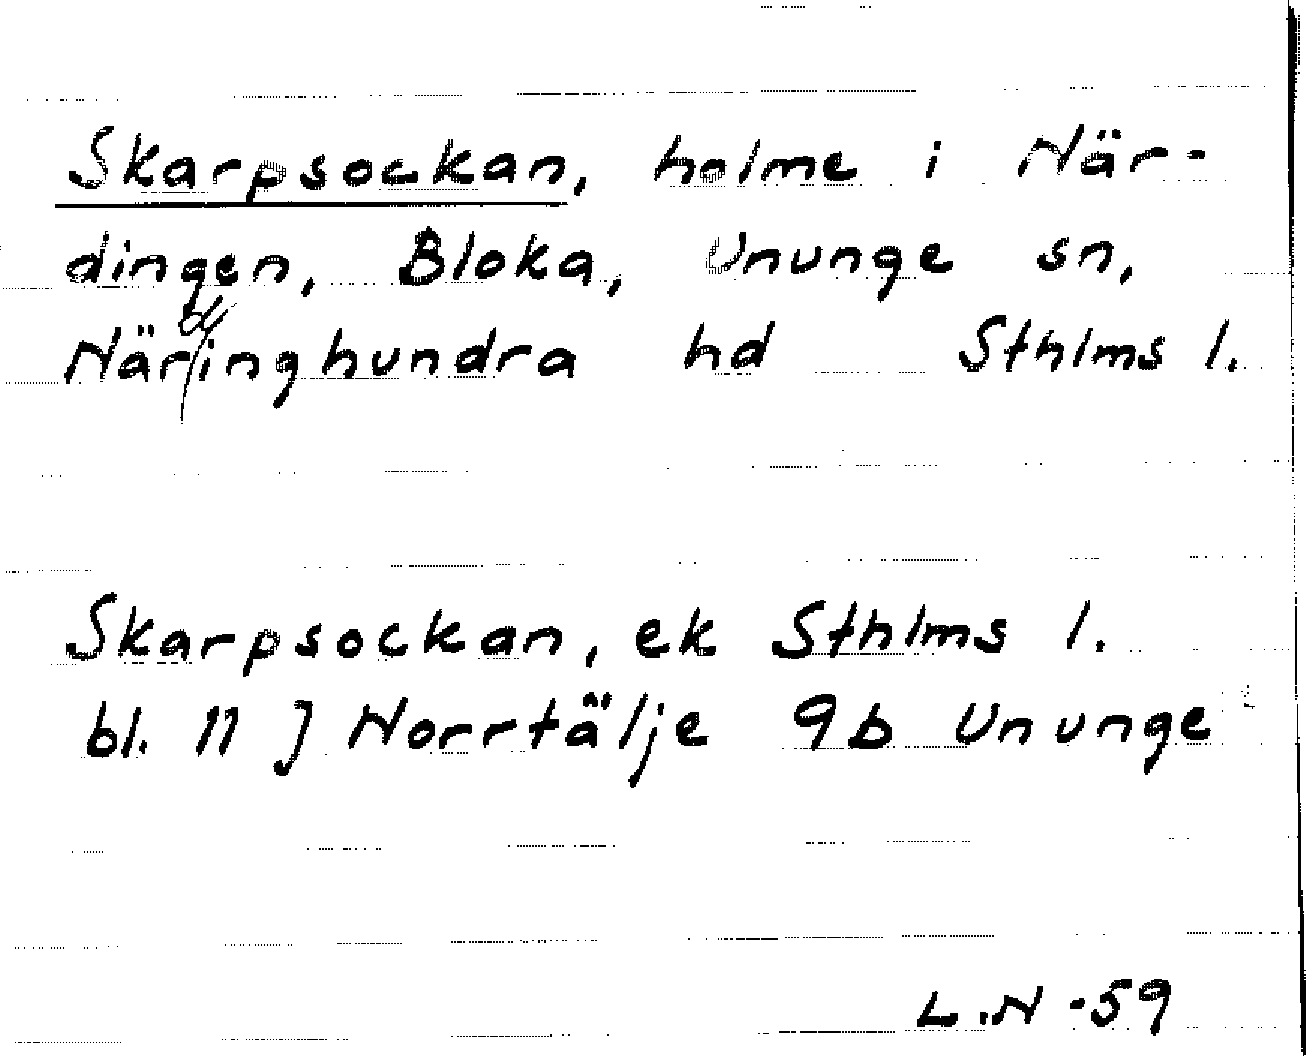 Skarpsockan, holme i När-
dingen, Bloka, Ununge sn,
Närdinghundra hd Sthlms l.
Skarpsockan, ek Sthlms l.
bl. 11 J Norrtälje 9b Ununge
L.N -59